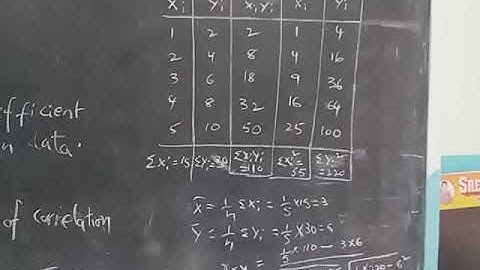 xᵢ yᵢ xᵢyᵢ xᵢ² yᵢ²
1 2 2 1 4
2 4 8 4 16
3 6 18 9 36
4 8 32 16 64
5 10 50 25 100
Σxᵢ=15 Σyᵢ=30 Σxᵢyᵢ=110 Σxᵢ²=55 Σyᵢ²=220
efficient
data.
of corelation
x̄ = 1/n Σxᵢ = 1/5 × 15 = 3
ȳ = 1/n Σyᵢ = 1/5 × 30 = 6
= 1/5 × 110 − 3×6